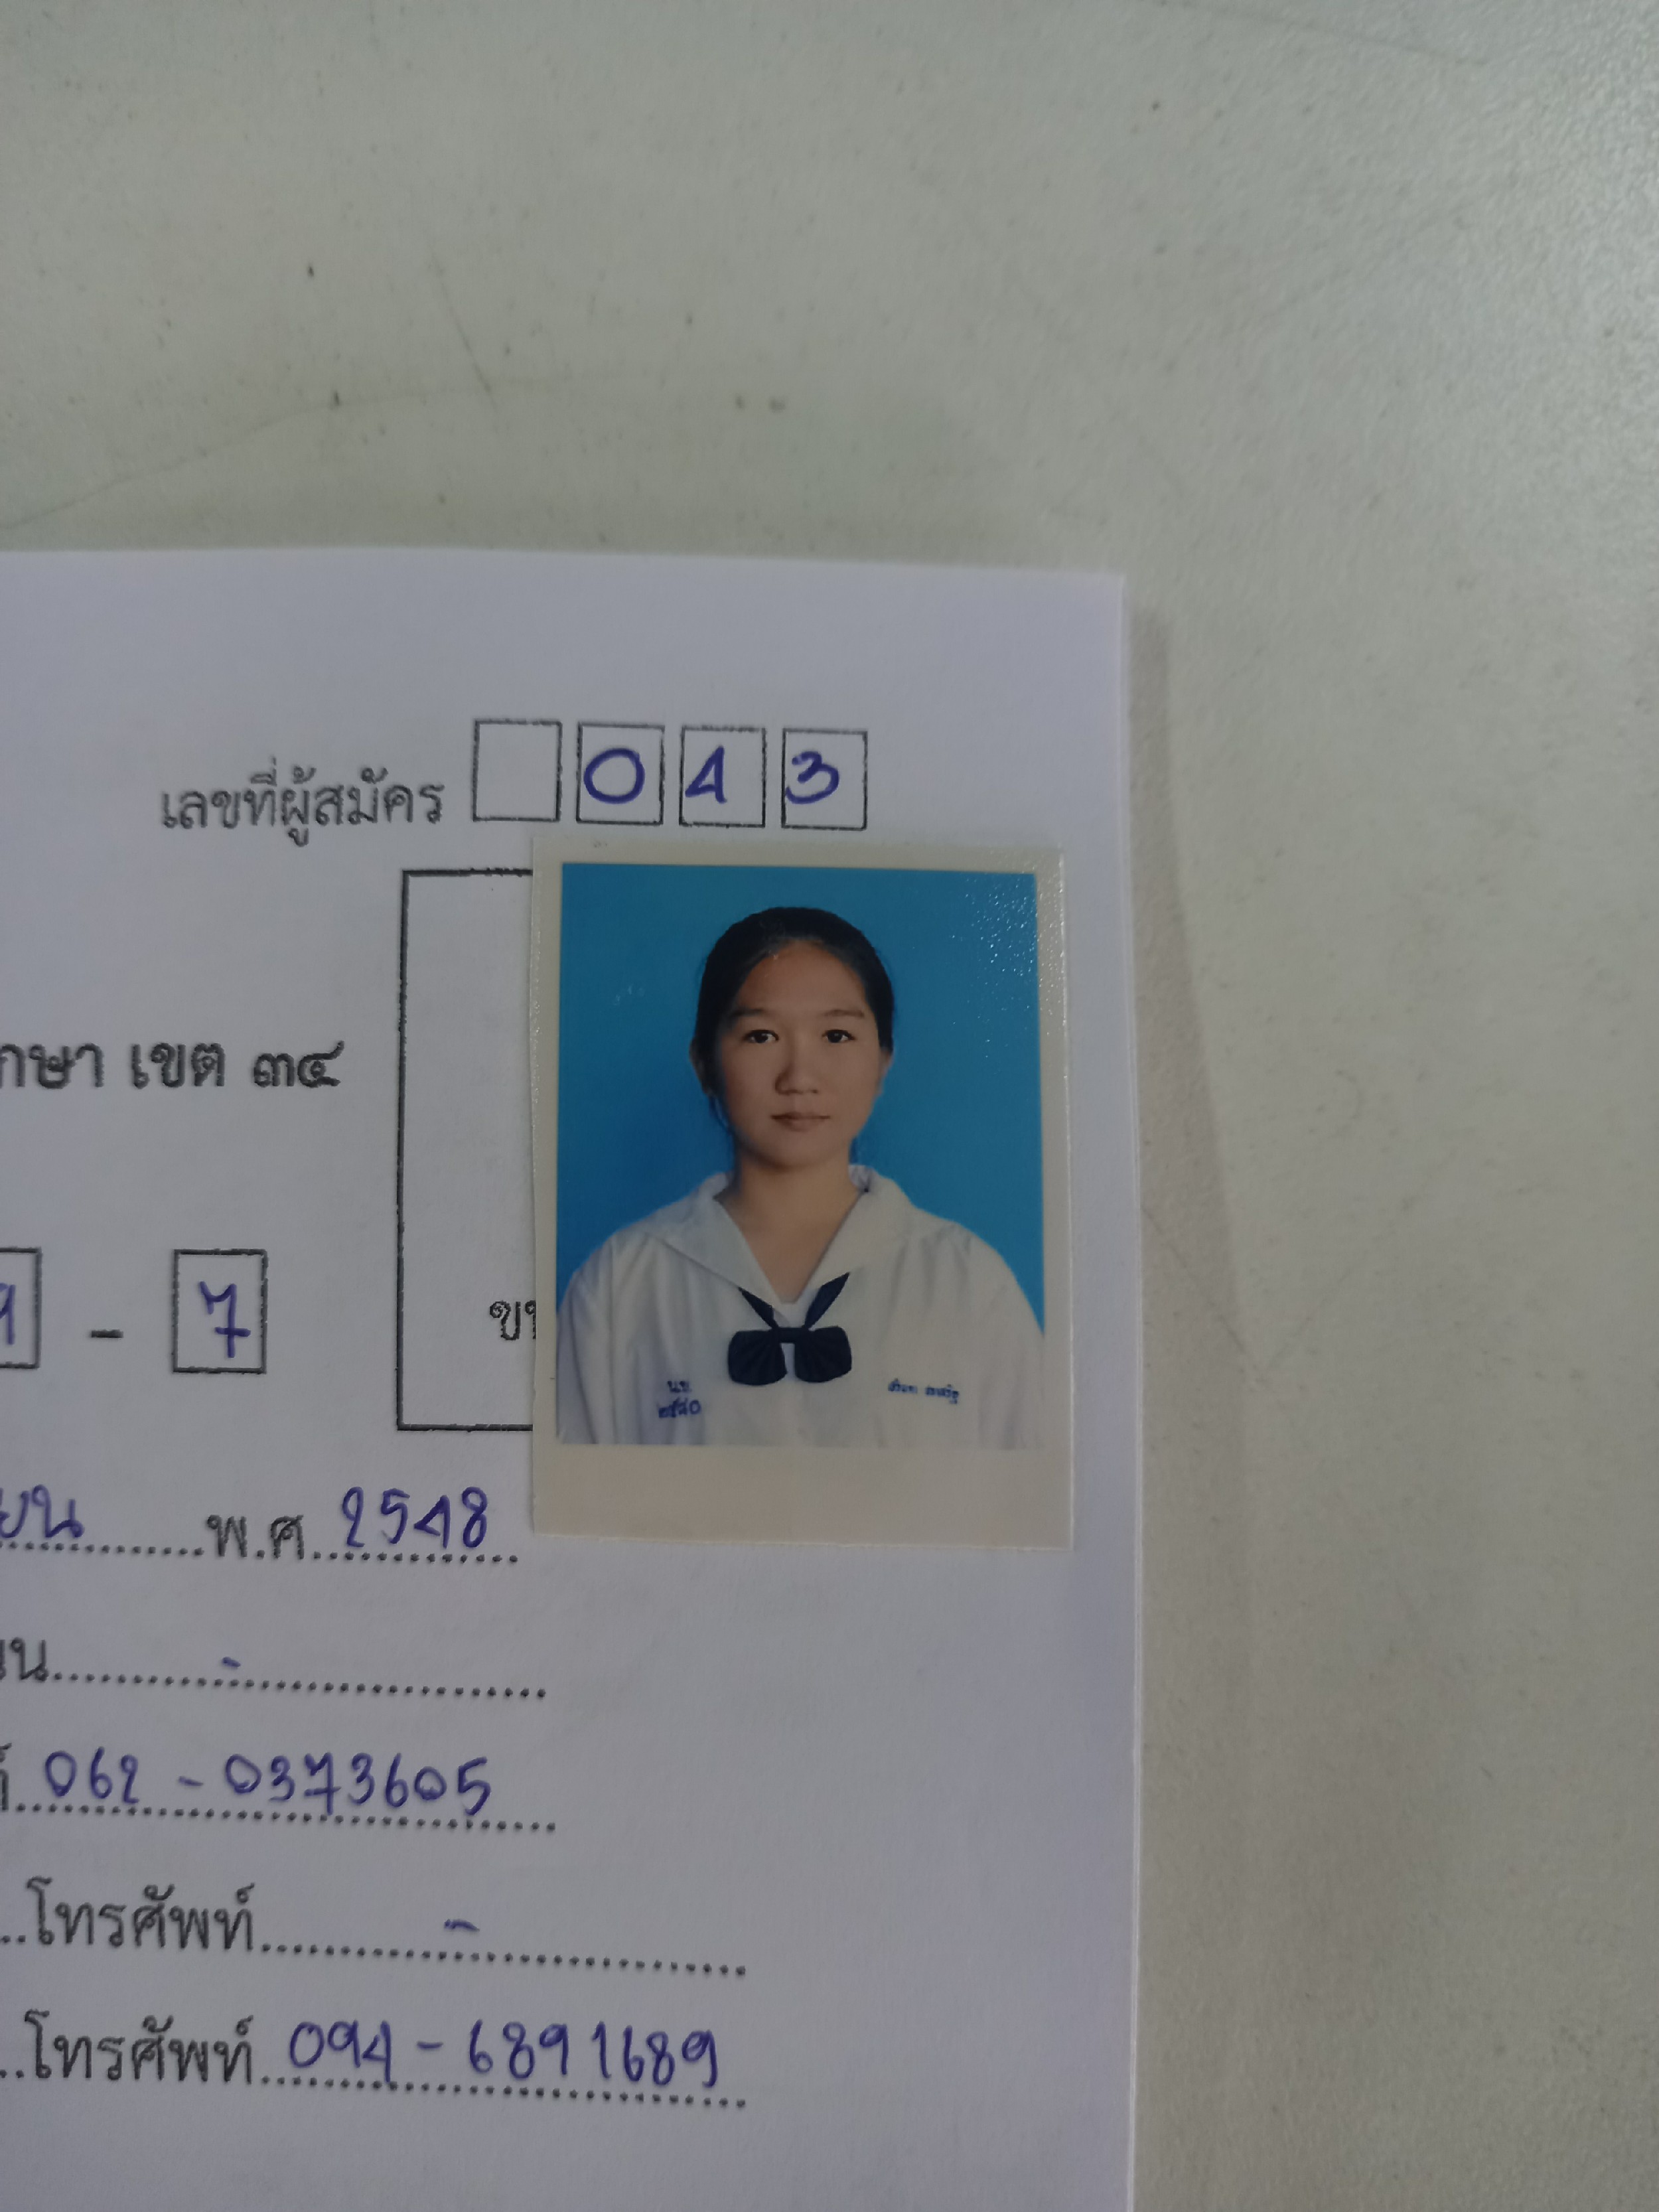 เลขที่ผู้สมัคร 0 4 3
กษา เขต ๓๔
- 7
ขน
น.ข.
๒๕๘๐
ยน พ.ศ. 2548
ยน -
062 - 0373605
โทรศัพท์ -
โทรศัพท์ 094 - 6891689